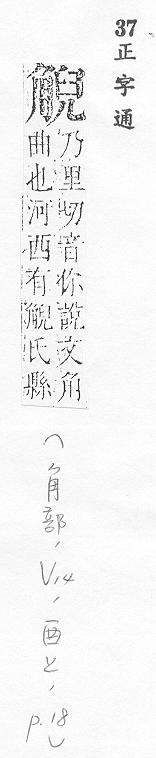 37正字通
觬
乃里切音你說文角
曲也河西有觬氏縣
(角部, V.14, 酉上, p.18)